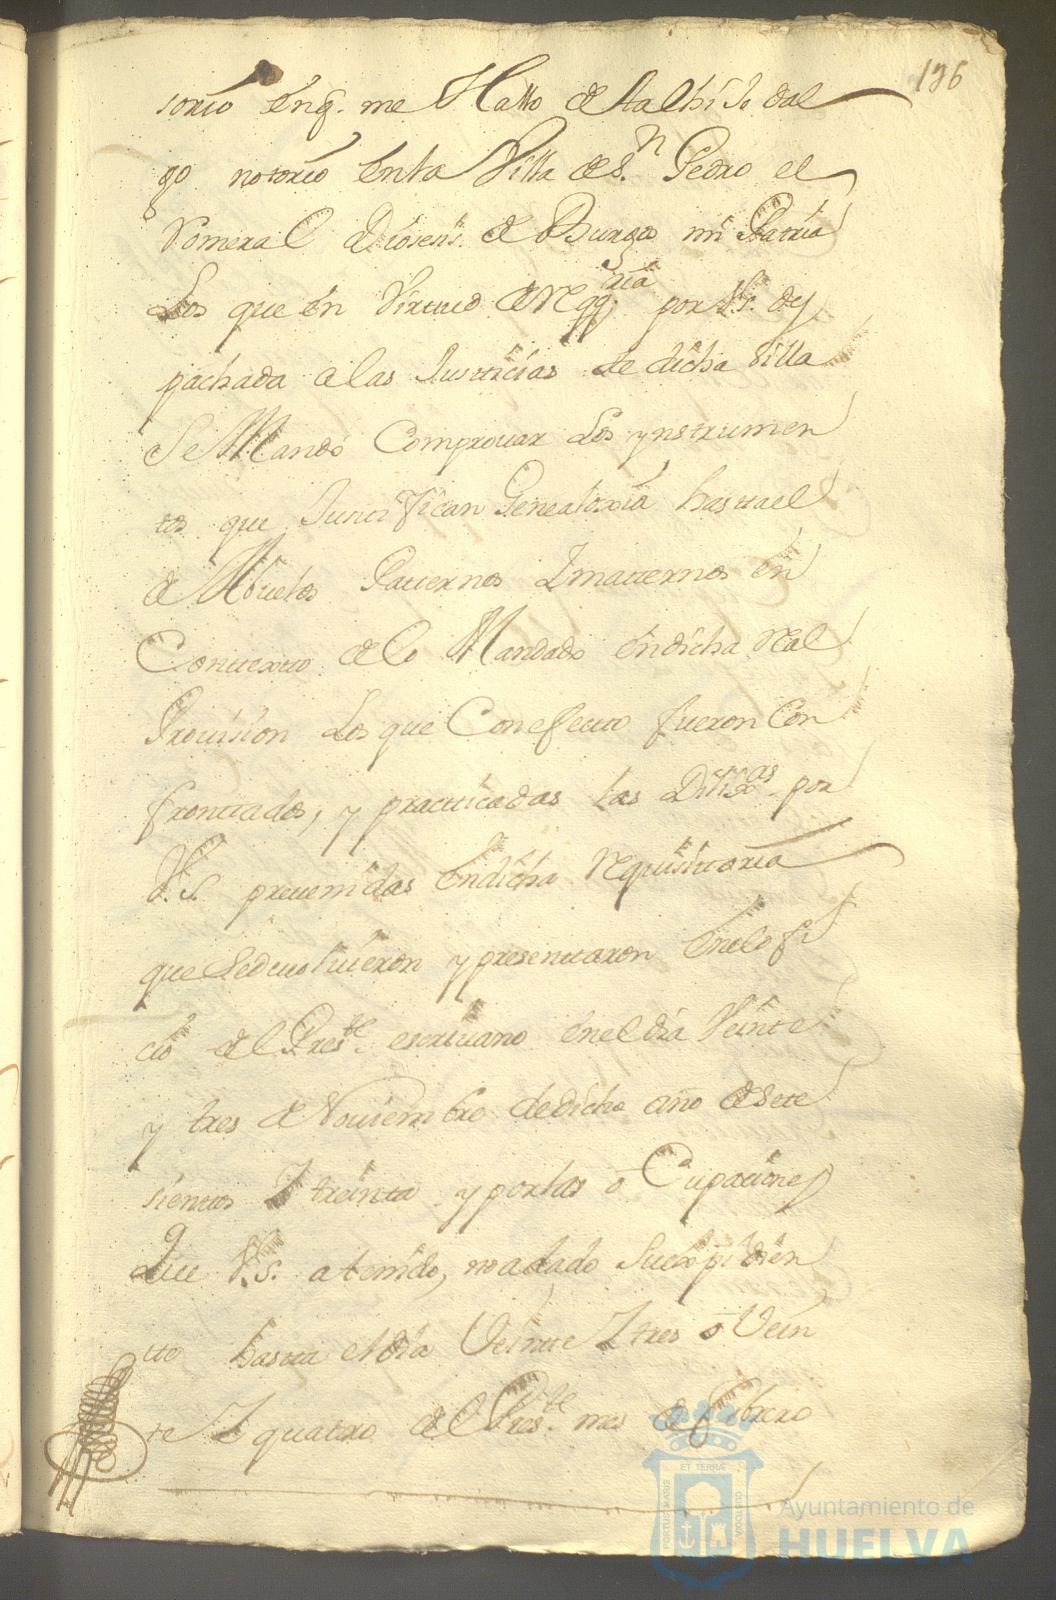 196
sorio en q.e me Hallo de tal hijo dal
go notorio en la Villa de S.n Pedro el
Romeral Diosesis de Burgos mi Patria
Los que en Virtud de Reqq.ria por V.S. des
pachada a las Justticias de dicha Villa
se Mandó Comprovar Los ynstrumen
tos que Justtifican Genealoxia hastta el
de Abuelos Patternos Y matternos en
Conttextto de lo Mandado en dicha Real
Provision Los que Con efectto fueron Con
fronttados, y practticadas las Dilix.as por
V.S. prevenidas en dicha Requisittoria
que se devolvieron y presenttaron en el ofi
cio de el Pres.te escrivano en el dia Veinte
y tres de Noviembre de dicho año de Sete
sientos Y treintta y por las o Cupaciones
que V.S. a tenido, no a dado su expidien
tte hastta el dia Veintte Y tres o Vein
te Y quatro de el Pres.te mes de febrero
PORTUS MARIS
ET TERRÆ
CUSTODIA
Ayuntamiento de
HUELVA